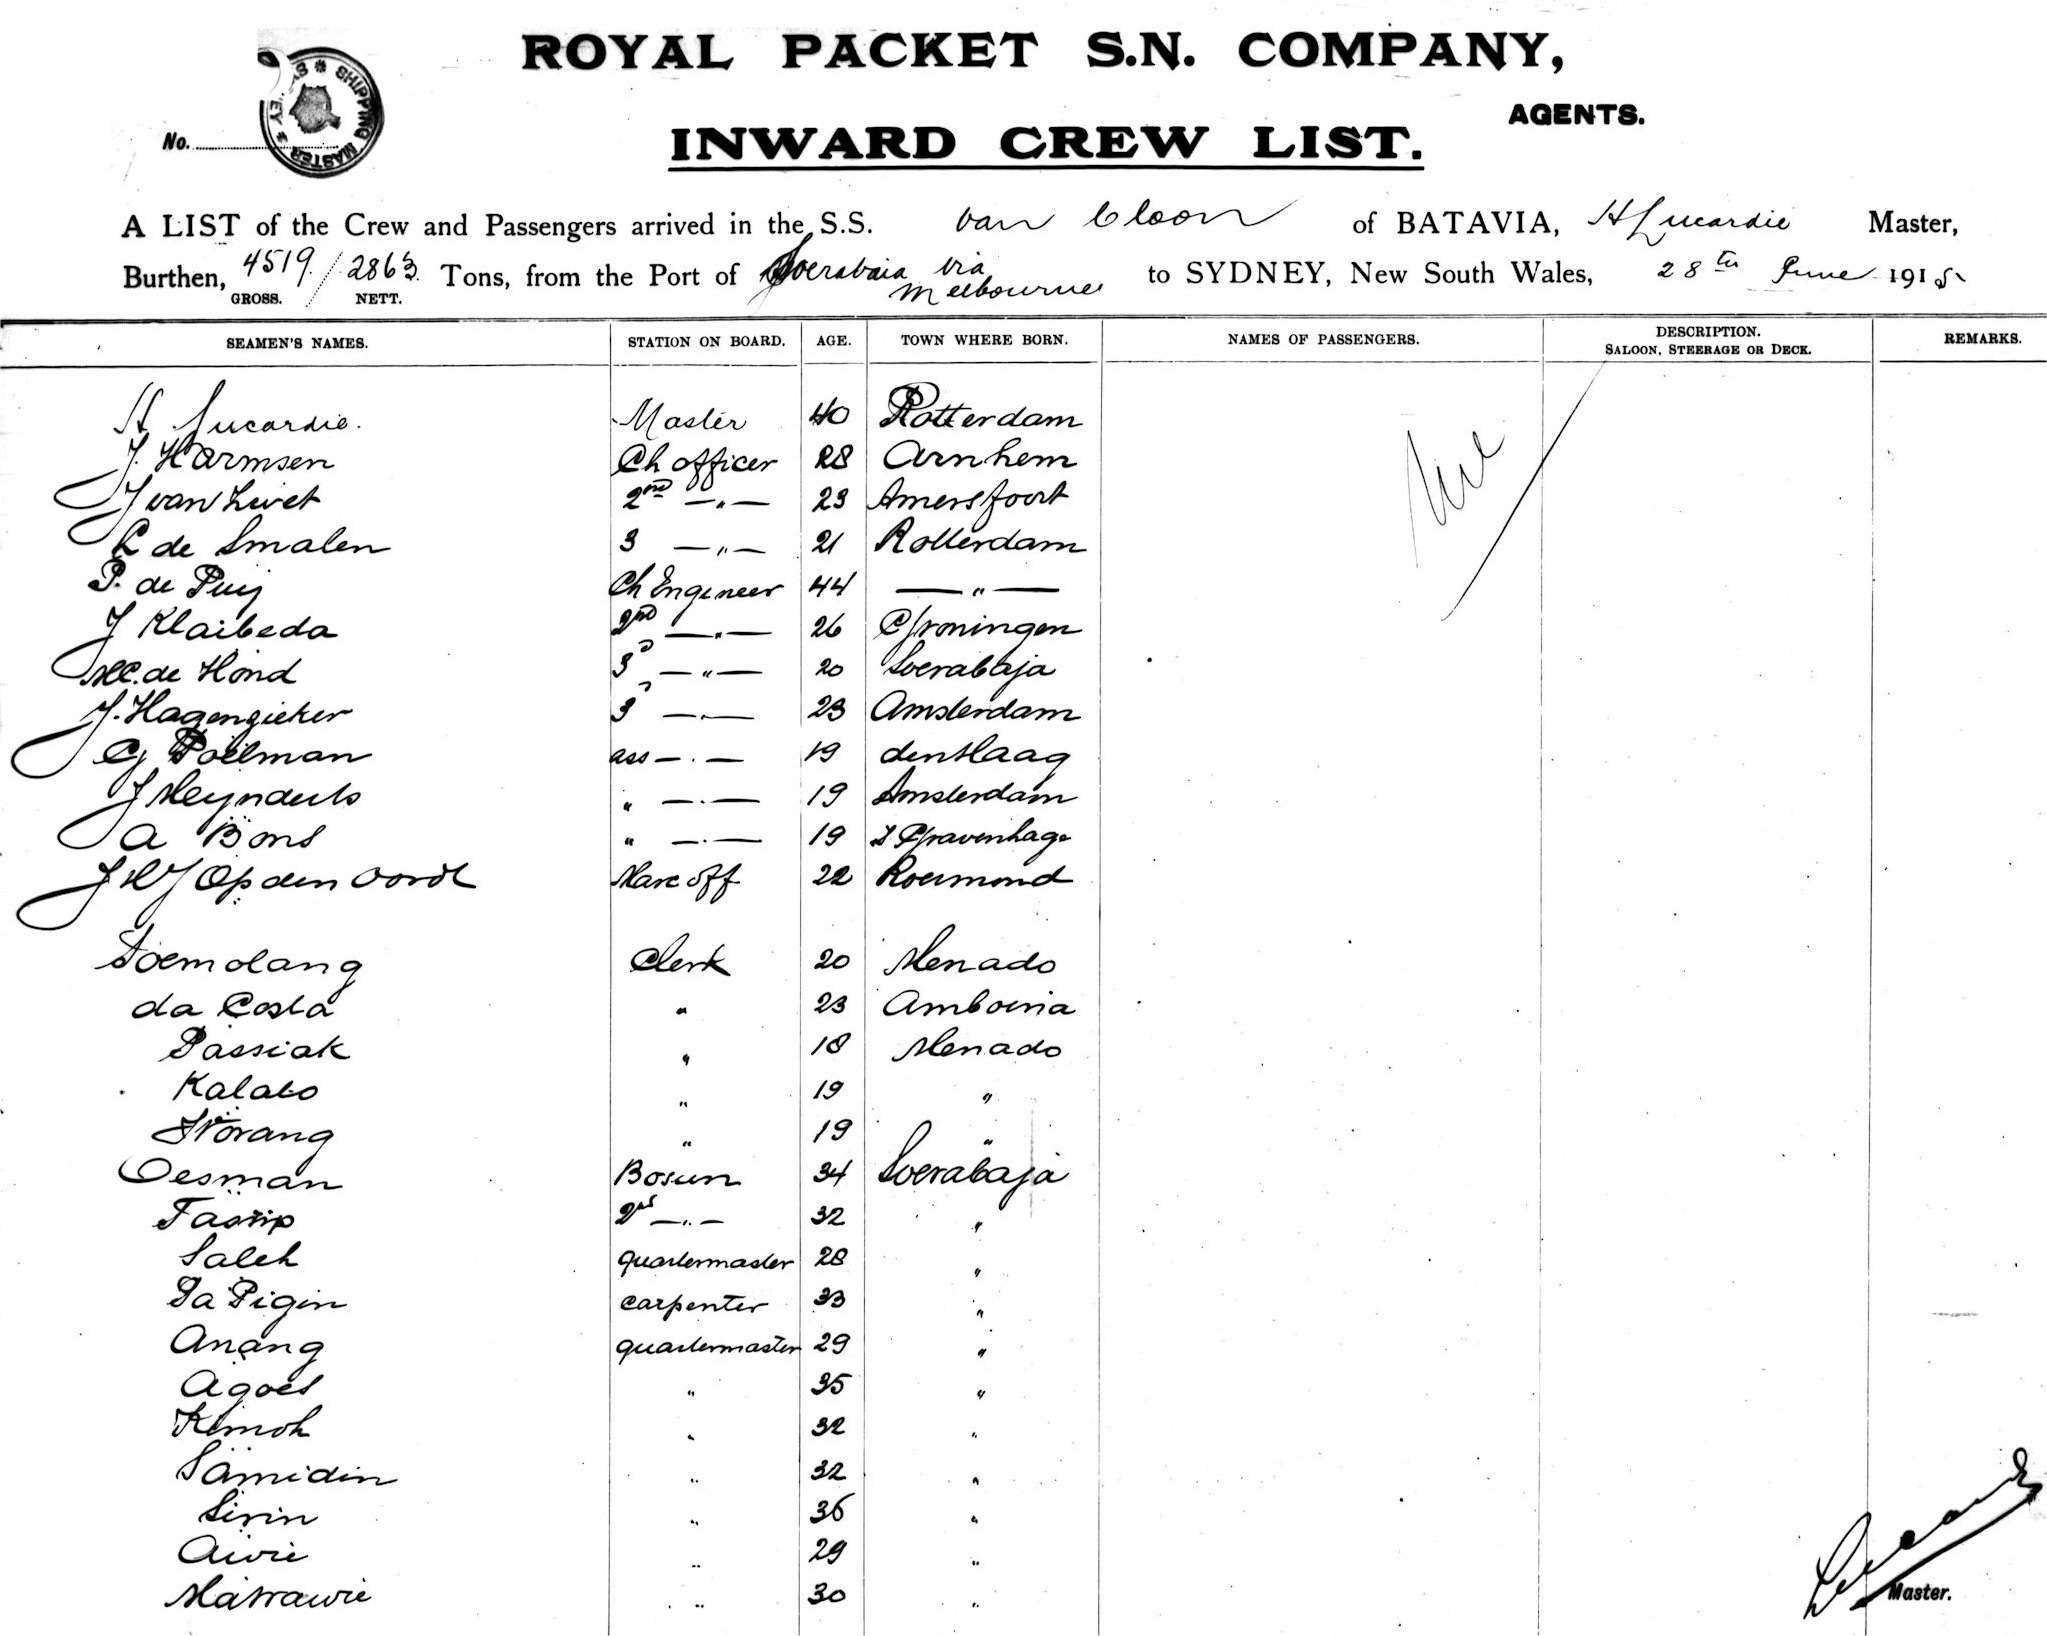 ROYAL PACKET S.N. COMPANY,
AGENTS.
INWARD CREW LIST.
No.
SHIPPING MASTER
A LIST of the Crew and Passengers arrived in the S.S. van Cloon of BATAVIA, H Lucardie Master,
Burthen, 4519 / 2863 Tons, from the Port of Soerabaia via Melbourne to SYDNEY, New South Wales, 28th June 1915
GROSS. NETT.
SEAMEN'S NAMES. STATION ON BOARD. AGE. TOWN WHERE BORN. NAMES OF PASSENGERS. DESCRIPTION. SALOON, STEERAGE OR DECK. REMARKS.
H Lucardie. Master 40 Rotterdam
Nil
J. Harmsen Ch officer 28 Arnhem
J van Livet 2nd —"— 23 Amersfoort
de Smalen 3 —"— 21 Rotterdam
P. de Puij Ch Engineer 44 —"—
J Klaibeda 2nd —"— 26 Groningen
de Hond 3 —"— 20 Soerabaja
J. Hagengieker 3 —"— 23 Amsterdam
G Poelman ass —"— 19 den Haag
J Meynderts " —"— 19 Amsterdam
A Bons " —"— 19 s Gravenhage
Op den Oordt Marc off 22 Roermond
Soemolang Clerk 20 Menado
da Costa " 23 Amboina
Passiak " 18 Menado
Kalalo " 19 "
Worang " 19 "
Oesman Bosun 34 Soerabaja
Tasrip 2nd —"— 32 "
Saleh quartermaster 28 "
Pa Pigin carpenter 33 "
Anang quartermaster 29 "
Agoes " 35 "
Kimoh " 32 "
Samidin " 32 "
Sirin " 36 "
Aivie " 29 "
Matrawie " 30 "
Lucardie
Master.